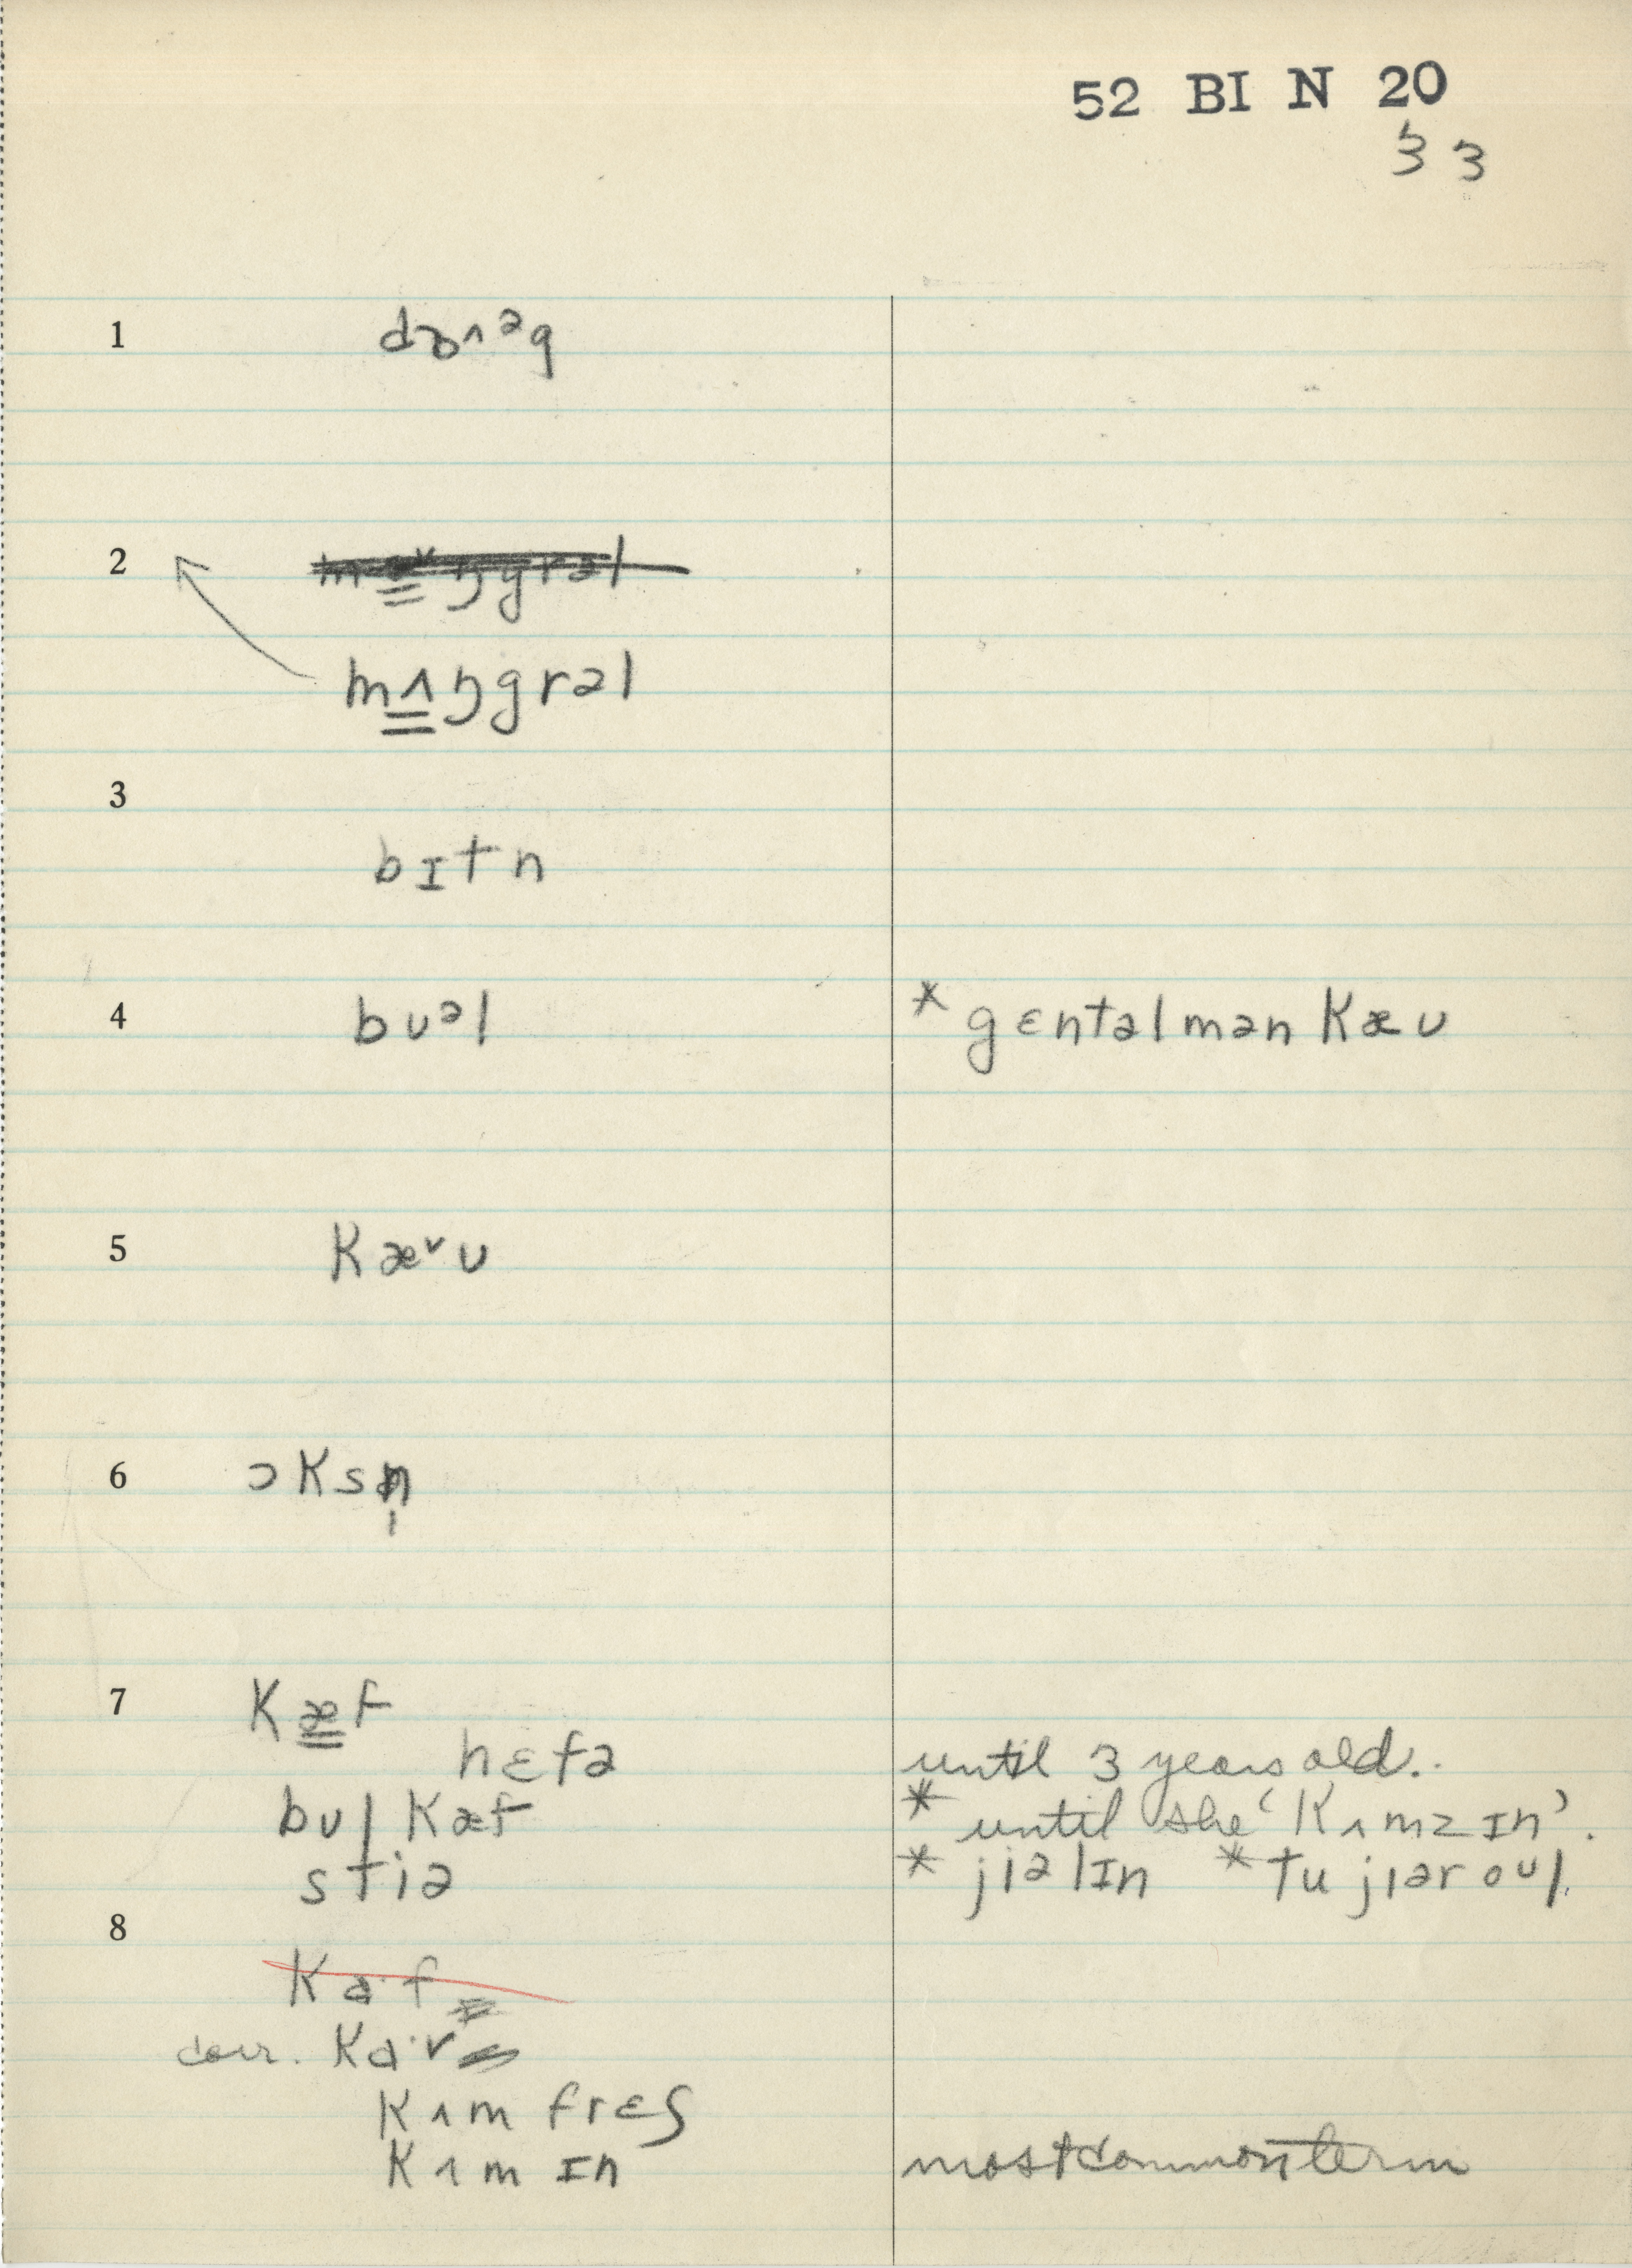 52 BI N 20
33
1 dɒ^ᵊg
2 mʌ̳ŋgrəl
3
bɪtn
4 bʊᵊl * gɛntəlmən Kæʊ
5 Kæ˅ʊ
6 ɔKsn̩
7 Kæ̳f
hɛfə until 3 years old.
bʊl Kæf * until she 'Kʌmz ɪn'.
stiə * jiəlɪn * tu jɪər oʊl.
8
Ka·f
corr. Ka·v
Kʌm frɛʃ
Kʌm ɪn most common term